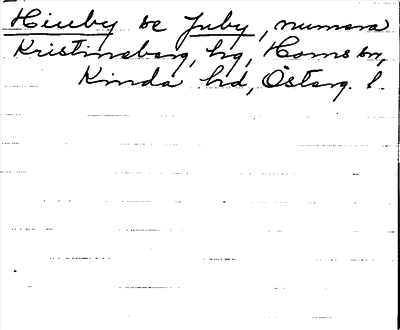 Hiuby se Juby, numera
Kristineberg, hg, Horns sn,
Kinda hd, Österg. l.